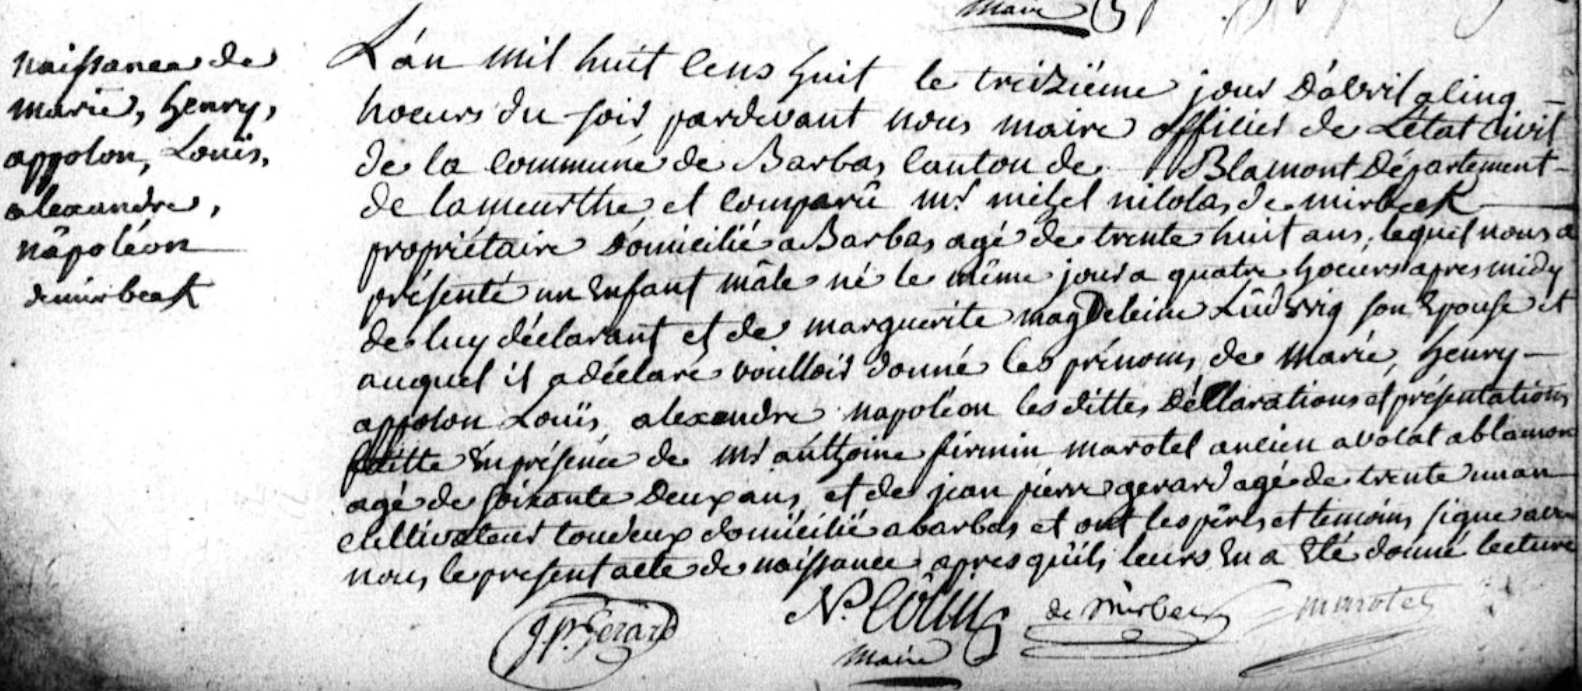 maire
naissance de
marie, henry,
appolon, Louis,
alexandre,
nâpoléon
demirbeck
L'an mil huit cens huit le treiziéme jour d'avril a cinq
hoeurs du soir pardevant nous maire officier de L'état Civil
de la commune de Barbas canton de Blamont Département
de lameurthe et comparû mr michel nicolas de mirbeck
propriétaire domicilié a Barbas agé de trente huit ans, lequel nous a
présenté un enfant mâle né le même jour a quatre hoeurs apres midy
de luy déclarant et de marguerite magdeleine Lûdwig son Epouse et
auquel il a déclaré voulloir donné les prénoms de marie, henry
appolon Louis alexandre napoléon les dittes Déclarations et présentations
faitte En présence de mr anthoine firmin marotel ancien avocat a blamont
agé de soixante Deux ans, et de jean pierre gerard agé de trente un an
cultivateur toudeux domicilié a barbas et ont les péres et temoins signe avec
nous le present acte de naissance apres qu'ils leurs En a Eté donné lecture
J.P. Gerard N. Colin de Mirbeck marotel
maire